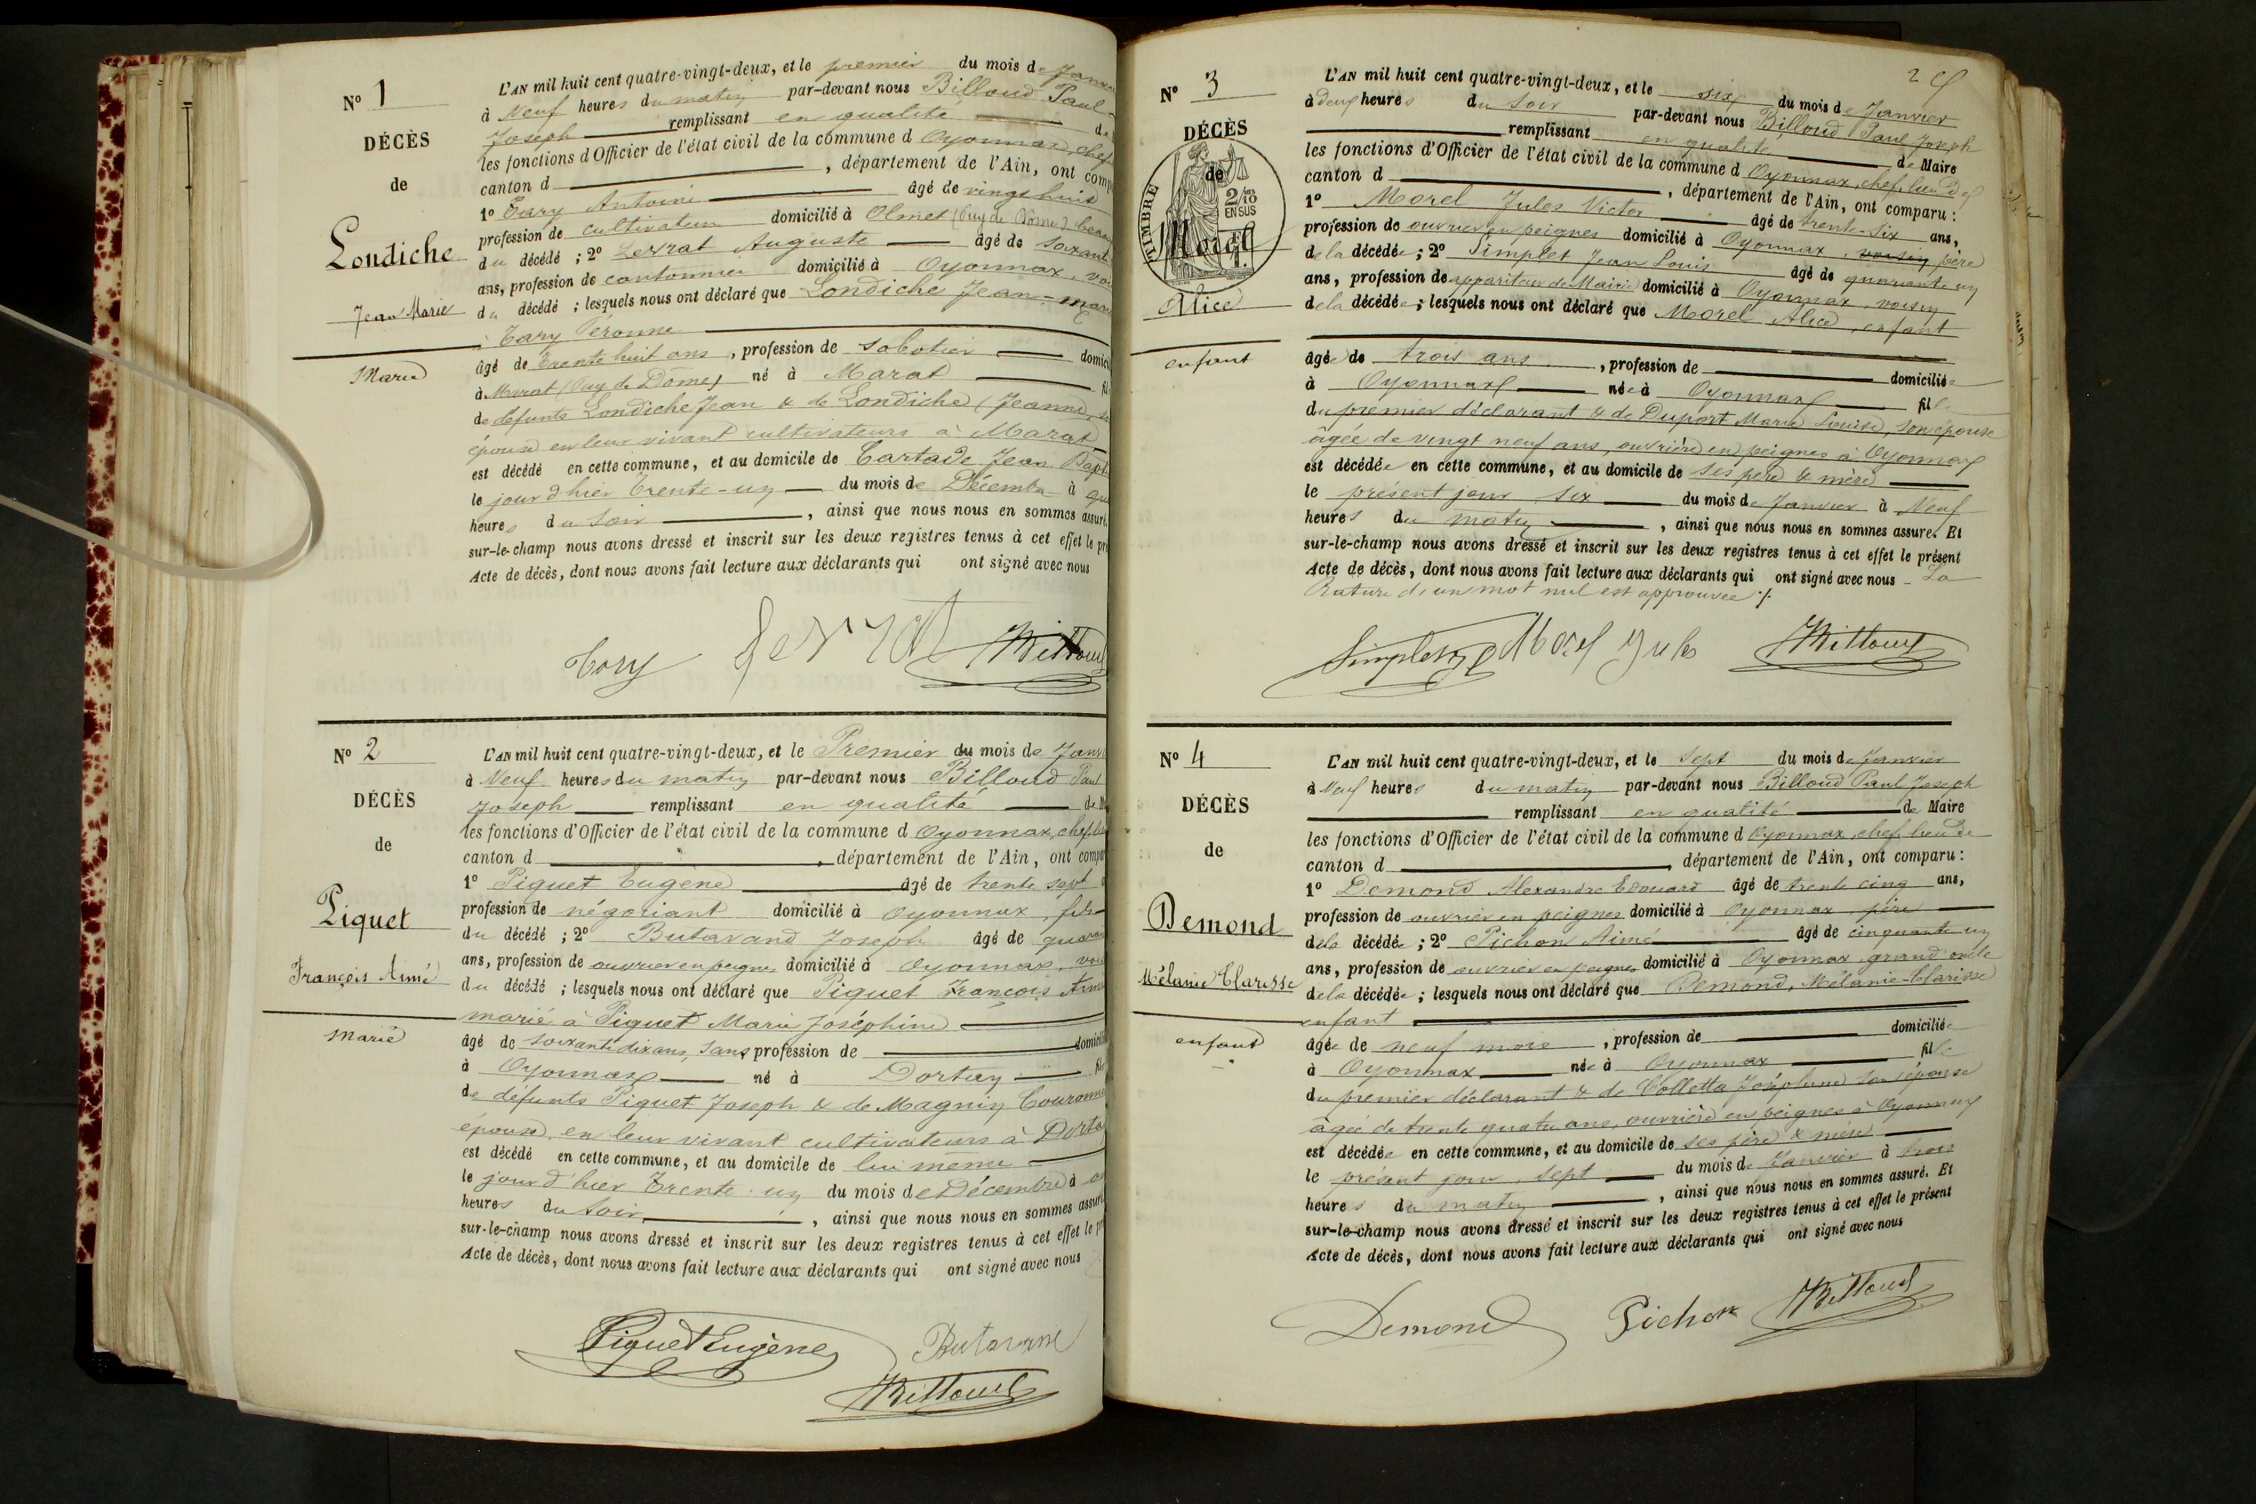 N° 1
DÉCÈS
de
Londiche
Jean Marie
Marié
L'AN mil huit cent quatre-vingt-deux, et le premier du mois de Janvi
à Neuf heures du matin par-devant nous Billoud Paul
Joseph remplissant en qualité de
les fonctions d'Officier de l'état civil de la commune d Oyonnax, chef
canton d , département de l'Ain, ont comp
1° Tary Antoine âgé de vingt huit
profession de cultivateur domicilié à Olmet (Puy de Dôme) beau
du décédé ; 2° Zerrat Auguste âgé de soixant
ans, profession de cantonnier domicilié à Oyonnax, voi
du décédé ; lesquels nous ont déclaré que Londiche Jean-Marie
à Tary Peronne
âgé de trente huit ans, profession de sabotier domici
à Marat (Puy de Dôme) né à Marat fil
de défunts Londiche Jean & de Londiche Jeanne, s
épouse en leur vivant cultivateurs à Marat
est décédé en cette commune, et au domicile de Cartade Jean Bapt
le jour d'hier trente-un du mois de Décembre à qu
heures du soir , ainsi que nous nous en sommes assuré.
sur-le-champ nous avons dressé et inscrit sur les deux registres tenus à cet effet le pré
Acte de décès, dont nous avons fait lecture aux déclarants qui ont signé avec nous
Tary Zerrat Billoud
N° 2
DÉCÈS
de
Piquet
François Aimé
Marié
L'AN mil huit cent quatre-vingt-deux, et le Premier du mois de Janvi
à Neuf heures du matin par-devant nous Billoud Paul
Joseph remplissant en qualité de M
les fonctions d'Officier de l'état civil de la commune d Oyonnax, chef lie
canton d , département de l'Ain, ont compar
1° Piquet Eugène âgé de trente sept
profession de négociant domicilié à Oyonnax, fils
du décédé ; 2° Butavand Joseph âgé de quaran
ans, profession de ouvrier en peignes domicilié à Oyonnax, voi
du décédé ; lesquels nous ont déclaré que Piquet François Aimé
marié à Piquet Marie Joséphine
âgé de soixante dix ans, sans profession de domicilié
à Oyonnax né à Dortan fils
de défunts Piquet Joseph & de Magnin Couronne
épouse, en leur vivant cultivateurs à Dorta
est décédé en cette commune, et au domicile de lui même
le jour d'hier trente-un du mois de Décembre à on
heures du soir , ainsi que nous nous en sommes assuré
sur-le-champ nous avons dressé et inscrit sur les deux registres tenus à cet effet le pr
Acte de décès, dont nous avons fait lecture aux déclarants qui ont signé avec nous
Piquet Eugène Butavand
Billoud
2
N° 3
DÉCÈS
de
TIMBRE
2/10
EN SUS
Morel
Alice
enfant
L'AN mil huit cent quatre-vingt-deux, et le six du mois de Janvier
à deux heures du soir par-devant nous Billoud Paul Joseph
remplissant en qualité de Maire
les fonctions d'Officier de l'état civil de la commune d Oyonnax, chef lieu de
canton d , département de l'Ain, ont comparu :
1° Morel Jules Victor âgé de trente-six ans,
profession de ouvrier en peignes domicilié à Oyonnax, voisin père
de la décédée ; 2° Simplet Jean Louis âgé de quarante un
ans, profession de appariteur de Mairie domicilié à Oyonnax, voisin
de la décédée ; lesquels nous ont déclaré que Morel Alice, enfant
âgée de trois ans , profession de domiciliée
à Oyonnax née à Oyonnax fille
du premier déclarant & de Duport Marie Louise, son épouse
âgée de vingt neuf ans, ouvrière en peignes à Oyonnax
est décédée en cette commune, et au domicile de ses père & mère
le présent jour six du mois de Janvier à Neuf
heures du matin , ainsi que nous nous en sommes assuré. Et
sur-le-champ nous avons dressé et inscrit sur les deux registres tenus à cet effet le présent
Acte de décès, dont nous avons fait lecture aux déclarants qui ont signé avec nous - La
Rature d'un mot nul est approuvée ./.
Simplet Morel Jules Billoud
N° 4
DÉCÈS
de
Demond
Mélanie Clarisse
enfant
L'AN mil huit cent quatre-vingt-deux, et le Sept du mois de Janvier
à Neuf heures du matin par-devant nous Billoud Paul Joseph
remplissant en qualité de Maire
les fonctions d'Officier de l'état civil de la commune d Oyonnax, chef lieu de
canton d , département de l'Ain, ont comparu :
1° Demond Alexandre Edouard âgé de trente cinq ans,
profession de ouvrier en peignes domicilié à Oyonnax, père
de la décédée ; 2° Pichon Aimé âgé de cinquante un
ans, profession de ouvrier en peignes domicilié à Oyonnax, grand oncle
de la décédée ; lesquels nous ont déclaré que Demond, Mélanie-Clarisse
enfant
âgée de neuf mois , profession de domiciliée
à Oyonnax née à Oyonnax fille
du premier déclarant & de Colletta Joséphine son épouse
âgée de trente quatre ans, ouvrière en peignes à Oyonnax
est décédée en cette commune, et au domicile de ses père & mère
le présent jour, sept du mois de Janvier à trois
heures du matin , ainsi que nous nous en sommes assuré. Et
sur-le-champ nous avons dressé et inscrit sur les deux registres tenus à cet effet le présent
Acte de décès, dont nous avons fait lecture aux déclarants qui ont signé avec nous
Demond Pichon Billoud